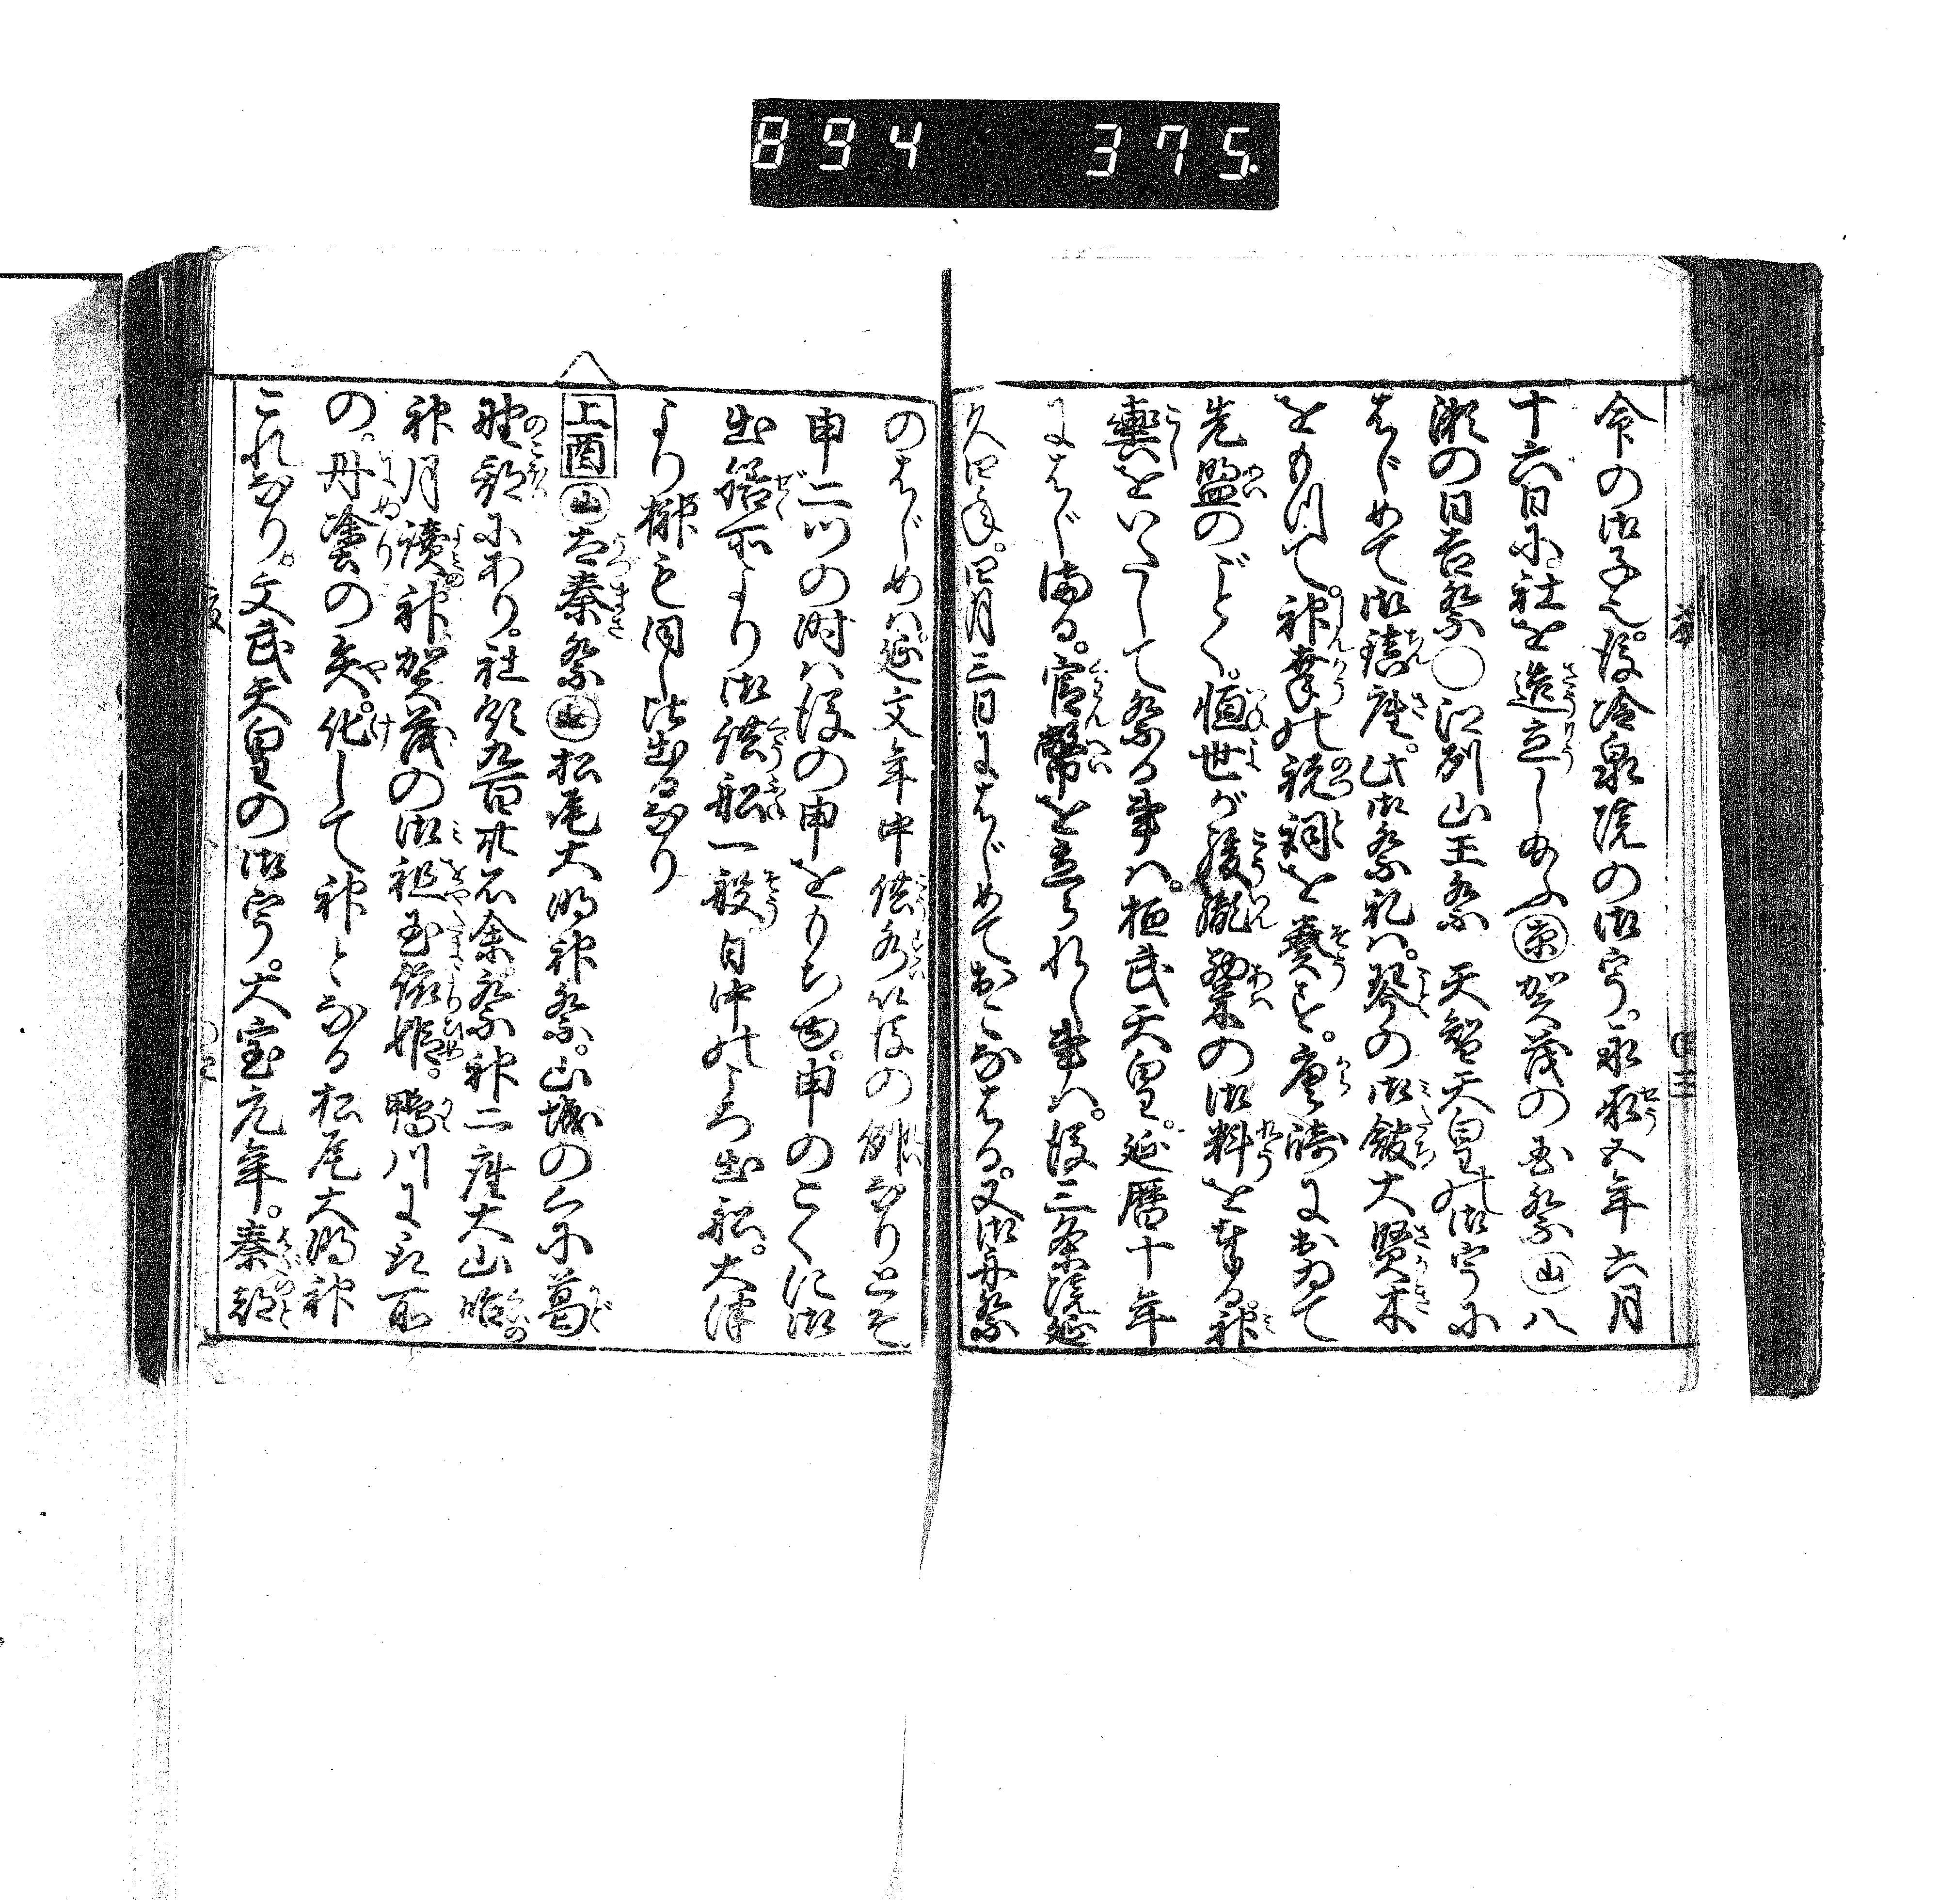 894 375.
命の御子也。後冷泉院の御宇。永承五年六月
十六日に。社を造立しあふ㊍賀茂の玉祭㊤八
瀬の日吉祭○江州山王祭 天智天皇の御宇に
はじめて御鎮座。此御祭礼は。琴の御館大賢木
をもつて。神幸の祝詞を奏す。唐崎におゐて
先盟のごとく。恒世が後胤粟の御料を奉る。神
輿をいだして祭る事は。桓武天皇。延暦十年
にはじまる。官幣を立られし事は。後三条院延
久四年。四月三日にはじめておこなはる。又御舟祭
のはじめは。延文年中供水以後の例なりとそ。
申二つの時は後の申をもちゆ。申のこくに御
出膳所より御供船一艘日中のころ出船。大津
より榊も同し比出るなり
上酉㊤太秦祭㊤松尾大明神祭。山城のくに葛
野郡にあり。社領九百廿石余祭神二座大山咋
神月読神賀茂の御祖玉依姫。鴨川にて取所
の。丹塗の矢。化して神となる松尾大明神
これなり。文武天皇の御宇。大宝元年。秦都